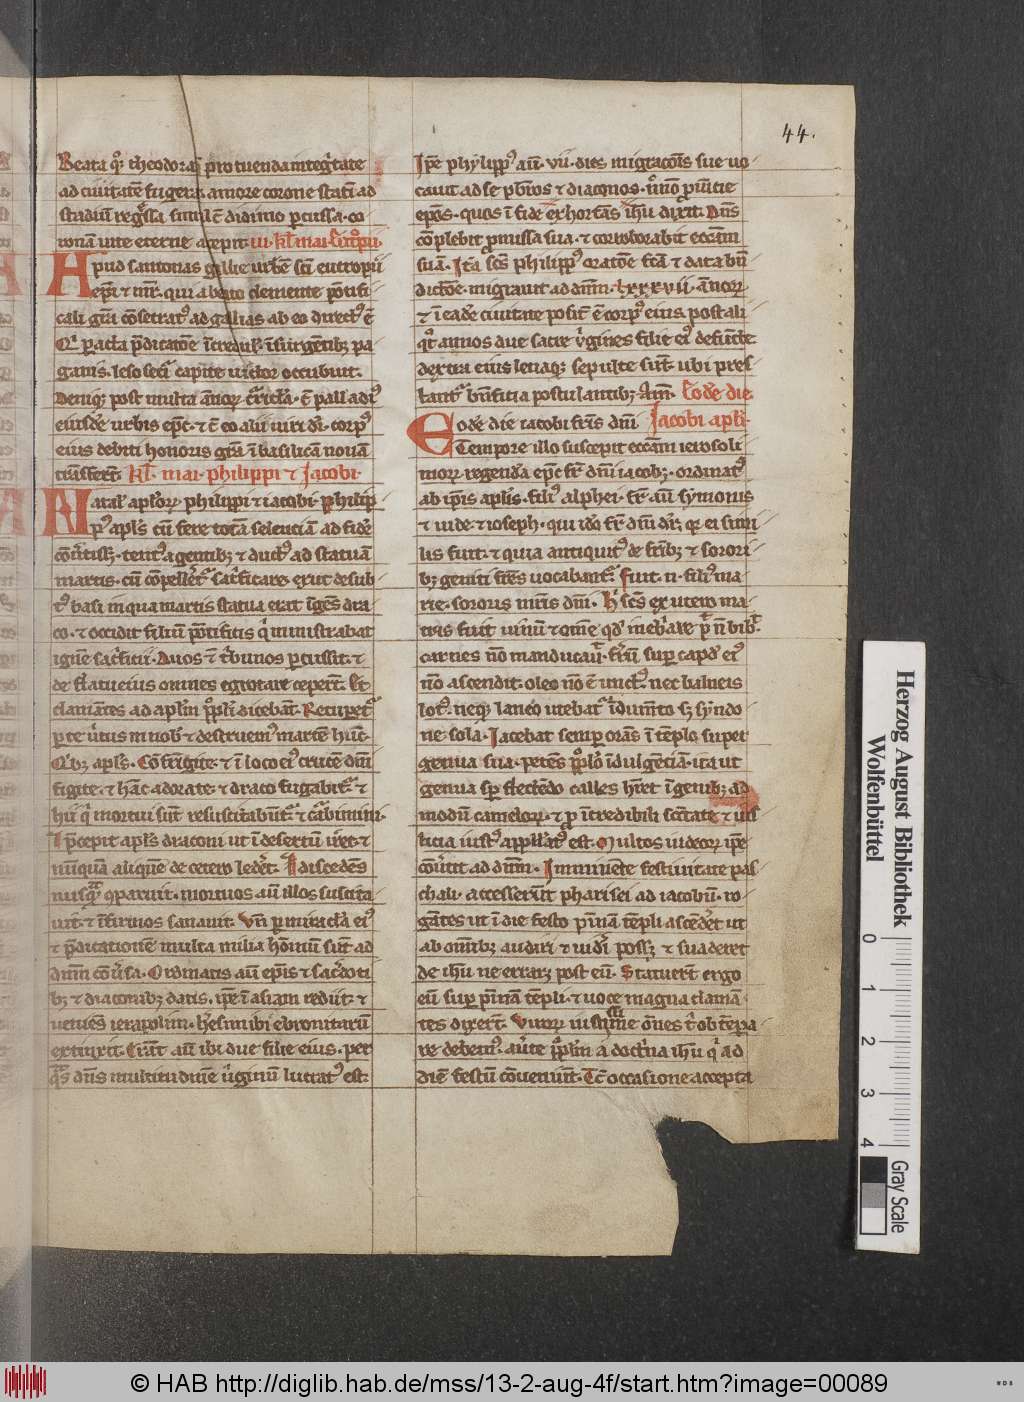 44.
Beata qꝫ theodora pro tuenda integ̃tate
ad ciuitatē fugerat amore corone statī ad
stadiū reg̃ssa simul c̄ didimo ꝑcussa · co
ronam uite eterne accepit · Eutropii
Apud santonas gallie urbē sc̄i eutropii
ep̄i ⁊ mr̄. qui a beato clemente pōtifi
cali gr̄a cōsecratꝰ ad gallias ab eo directꝰ ē
Qi ꝑacta p̄dicatōne īcredul. īsurgētibꝫ pa
ganis. leso capite uictor occubuit.
Deniqꝫ post multa
eiusdē urbis ep̄c corpꝰ
eius debiti honoris gr̄a ī basilicā nouā
trāsferret. kl̄. mai. philippi ⁊ Jacobi.
Natal̄ apl̄oꝝ philippi ⁊ iacobi. philip
pꝰ apl̄s cū fere totā ad fidē
cōutisꝫ. tentꝰ a gentibꝫ ⁊ ductꝰ ad statuā
martis. cū cōpellet̄ sac̄ficare. exiit de sub
tꝰ basi in qua martis statua erat īgēs dra
co. ⁊ occidit filiū pōtificis qͥ ministrabat
ignē sacͥficii. Duos ⁊ tͥbunos ꝑcussit. ⁊
de flatu eius omnes egrotare ceperūt. Et
clamātes ad apl̄m dicebāt. Recuperet
ꝑ te uͥtus in nob̄ ⁊ destruemꝰ martē hūc.
Qͥbꝫ apl̄s. Cōfrīgite. ⁊ ī loco eiꝰ crucē dn̄i
figite. ⁊ hāc adorate. ⁊ draco fugabitᷣ. ⁊
hii qͥ mortui sūt resuscitabūt
P̄cepit apl̄s draconi ut ī desertū iret. ⁊
nūquā aliquē de cetero lederet. discedēs
nusqᷓ cōparuit. mortuos aū illos suscita
uit. ⁊ īfirmos sanauit. Vn̄ ꝑ miracl̄a eiꝰ
⁊ p̄dicationē multa milia hōinū sūt ad
dn̄m cōuersa. Ordinatis aū ep̄is ⁊ sac̄doti
bꝫ ⁊ diaconibꝫ datis. ip̄e ī asiam rediit. ⁊
ueniēs ierapolim. heresim ibi ebionitarū
extinxit. Erāt aū ibi due filie eius. per
qᷓs dn̄s multitudinē uͥginū lucratꝰ est.
Ip̄e phylippꝰ aū. vii. dies migratiōis sue uo
cauit ad se pb̄ros ⁊ diaconos. prouīcie
ep̄os. quos ī fide exhortās ih̄m dixit. Dn̄s
cōplebit ꝓmissa sua. ⁊ corroborabit ecc̄am
suā. Itaqꝫ sc̄s philippꝰ oratōne fc̄a ⁊ data bn̄
dictiōe. migrauit ad dn̄m. lxxxvii. annoꝝ
⁊ ī eadē ciuitate posit̄ ē corpꝰ eius. post ali
qͦt annos due sacre uͥgines filie eiꝰ defūcte
dextra eius leuaqꝫ. sepulte sūt. ubi pres
tantᷣ bn̄ficia postulantibꝫ. Am̄. Eodē die
Jacobi apl̄i.
Eodē die iacobi fr̄is dn̄i
Tempore illo suscepit ecc̄am ierosoli
moꝝ regendā ep̄c fr̄ dn̄i iacobꝫ. ordinatꝰ
ab ip̄is apl̄is. filiꝰ alphei. fr̄ aū symonis
⁊ iude. ⁊ ioseph. qui idō fr̄ dn̄i dr̄. qꝛ ei simi
lis fuit. ⁊ quia antiquitꝰ de fr̄ibꝫ ⁊ sorori
bꝫ geniti fr̄es uocabantᷣ. Fuit. n. filiꝰ ma
rie. sororis mr̄is dn̄i. Hͥ sc̄s ex utero ma
tris fuit uinū ⁊ om̄e qd̄ inebͥare pt̄ n̄ bibit.
carnes nō manducauit. ferrū suꝑ capd̄ eiꝰ
nō ascendit. oleo nō ē unctꝰ. nec balneis
lotꝰ. neqꝫ laneo utebatᷣ īdumēto sꝫ syndo
ne sola. Iacebat semꝑ orās ī tēplo super
genua sua. petēs ppl̄o īdulgētiam. ita ut
genua sꝑ flectēdo calles ī genibꝫ ad
modū cameloꝝ. ⁊ ꝑ īcredibili sc̄itate ⁊ ius
ticia iustꝰ appellatꝰ est. Multos iudeoꝝ ip̄e
cōuertit ad dn̄m. Imminēte festiuitate pas
chali. accesserūt pharisei ad iacobū. ro
gātes ut ī die festo pīnam tēpli ascēdet ut
ab omībꝫ audiri ⁊ uideri possꝫ. ⁊ suaderet
de ih̄u ne errarꝫ post eū. Statuerūt ergo
eū suꝑ pīnam tēpli. ⁊ uoce magna clamā
tes dixerūt. Viroꝝ iustissime om̄es tͥ obtēꝑa
re debemꝰ. auͥte ppl̄m a doctͥna ih̄u qͥ ad
diē festū cōueniūt. Tc̄ occasione accepta
Herzog August Bibliothek
Wolfenbüttel
0 1 2 3 4
Gray Scale
© HAB http://diglib.hab.de/mss/13-2-aug-4f/start.htm?image=00089
WDB